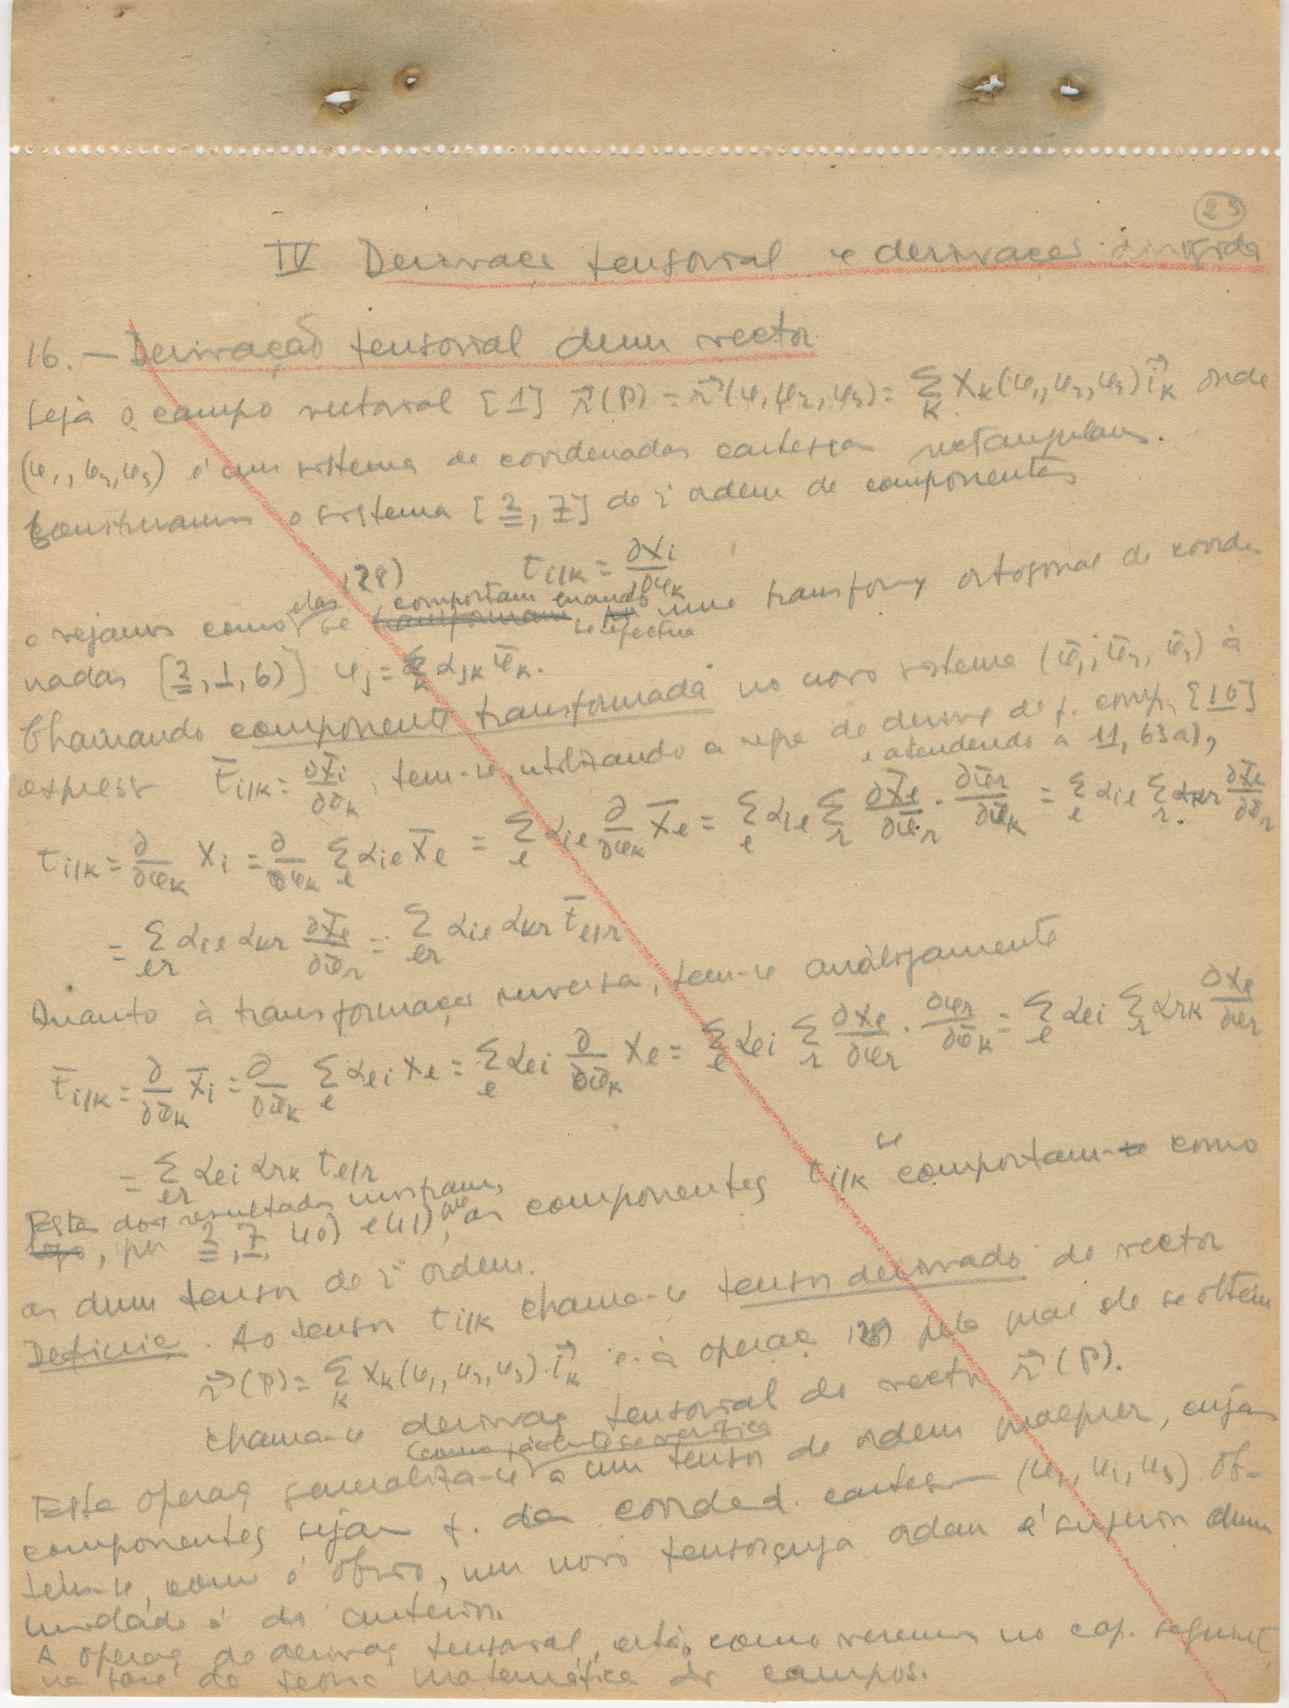 23
IV Derivaçes tensorial e derivaçes dirigida
16. — Derivação tensorial dum vector
Seja o campo vectorial [1] r⃗(P) = r⃗(φ₁,φ₂,φ₃) = Σ_k X_k(φ₁,φ₂,φ₃) i⃗_k onde
(φ₁,φ₂,φ₃) é um sistema de coordenadas cartesian rectangulares.
Construamos o sistema [2, 7] de 2ª ordem de componentes
28) t_i/k = ∂X_i/∂φ_k
e vejamos como elas se comportam quando se efectua uma transformç ortogonal de coorde-
nadas [2, 1, 6)] φ_j = Σ_k α_jk φ̄_k.
Chamando componente transformada no novo sistema (φ̄₁, φ̄₂, φ̄₃) à
express t̄_i/k = ∂X̄_i/∂φ̄_k, tem-se, utilizando a regra de derivç de f. comp. [16] e atendendo a 11, 63a),
t_i/k = ∂/∂φ_k X_i = ∂/∂φ_k Σ_l α_il X̄_l = Σ_l α_il ∂/∂φ_k X̄_l = Σ_l α_il Σ_r ∂X̄_l/∂φ̄_r · ∂φ̄_r/∂φ_k = Σ_l α_il Σ_r α_kr ∂X̄_l/∂φ̄_r
= Σ_lr α_il α_kr ∂X̄_l/∂φ̄_r = Σ_lr α_il α_kr t̄_l/r
Quanto à transformaçes inversa, tem-se anàlogamente
t̄_i/k = ∂/∂φ̄_k X̄_i = ∂/∂φ̄_k Σ_l α_li X_l = Σ_l α_li ∂/∂φ̄_k X_l = Σ_l α_li Σ_r ∂X_l/∂φ_r · ∂φ_r/∂φ̄_k = Σ_l α_li Σ_r α_rk ∂X_l/∂φ_r
= Σ_lr α_li α_rk t_l/r
Estes dois resultados mostram, por 2, 7, 40) e 41), que as componentes t_i/k se comportam como
as dum tensor de 2ª ordem.
Definiç. Ao tensor t_i/k chama-se tensor derivado do vector
r⃗(P) = Σ_k X_k(φ₁,φ₂,φ₃) · i⃗_k e à operaç 28) pela qual ele se obtem
chama-se derivaç tensorial do vector r⃗(P).
Esta operaç generaliza-se a um tensor de ordem qualquer, cujas
componentes sejam f. das coorded. cartes (φ₁, φ₂, φ₃). Ob-
tem-se, como é óbvio, um novo tensor, cuja ordem é superior duma
unidade à do anterior.
A operaç de derivaç tensorial, está, como veremos no cap. seguint,
na base da teoria matemática dos campos.